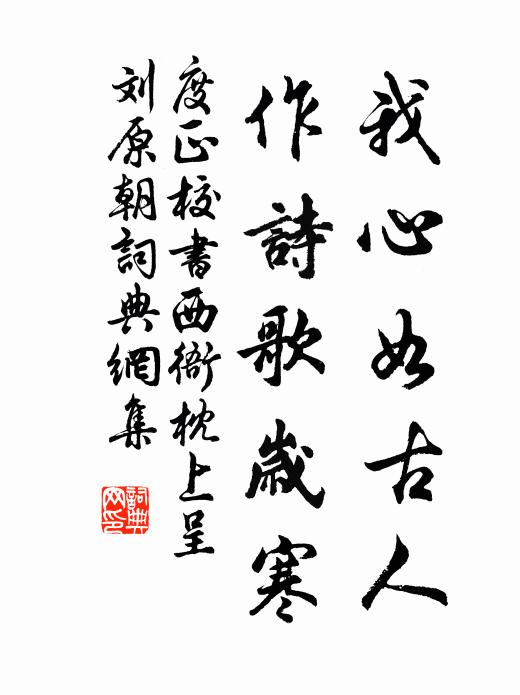 我心如古人
作詩歌歲寒
度正校書西衙枕上呈
刘原朝詞典網集
詞典网印